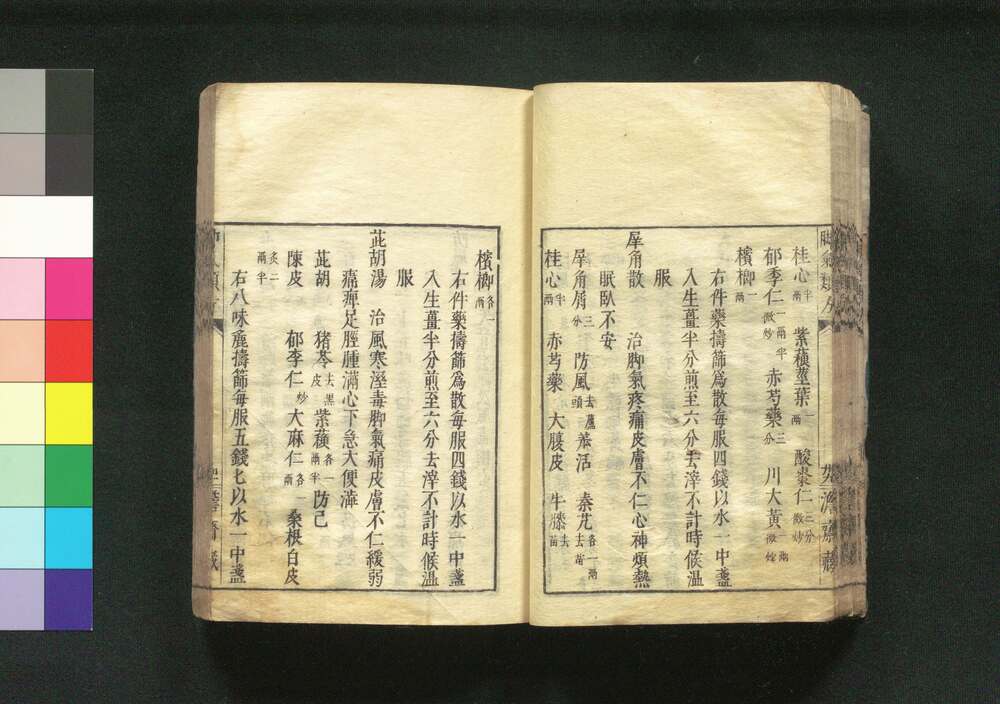 脚氣類方
桂心半兩 紫蘇莖葉一兩 酸棗仁三分微炒
郁李仁一兩半微炒 赤芍藥三分 川大黃一兩微炒
檳榔一兩
右件藥擣篩爲散每服四錢以水一中盞
入生薑半分煎至六分去滓不計時候温
服
犀角散 治脚氣疼痛皮膚不仁心神煩熱
眠臥不安
犀角屑三分 防風去蘆頭 羗活 秦艽去苗各一兩
桂心半兩 赤芍藥 大腹皮 牛膝去苗
檳榔各一兩
右件藥擣篩爲散每服四錢以水一中盞
入生薑半分煎至六分去滓不計時候温
服
茈胡湯 治風寒溼毒脚氣痛皮膚不仁緩弱
痛痺足脛腫滿心下急大便澁
茈胡 猪苓去黑皮 紫蘇各一兩半 防己
陳皮 郁李仁炒 大麻仁各一兩 桑根白皮
炙二兩半
右八味麄擣篩每服五錢七以水一中盞